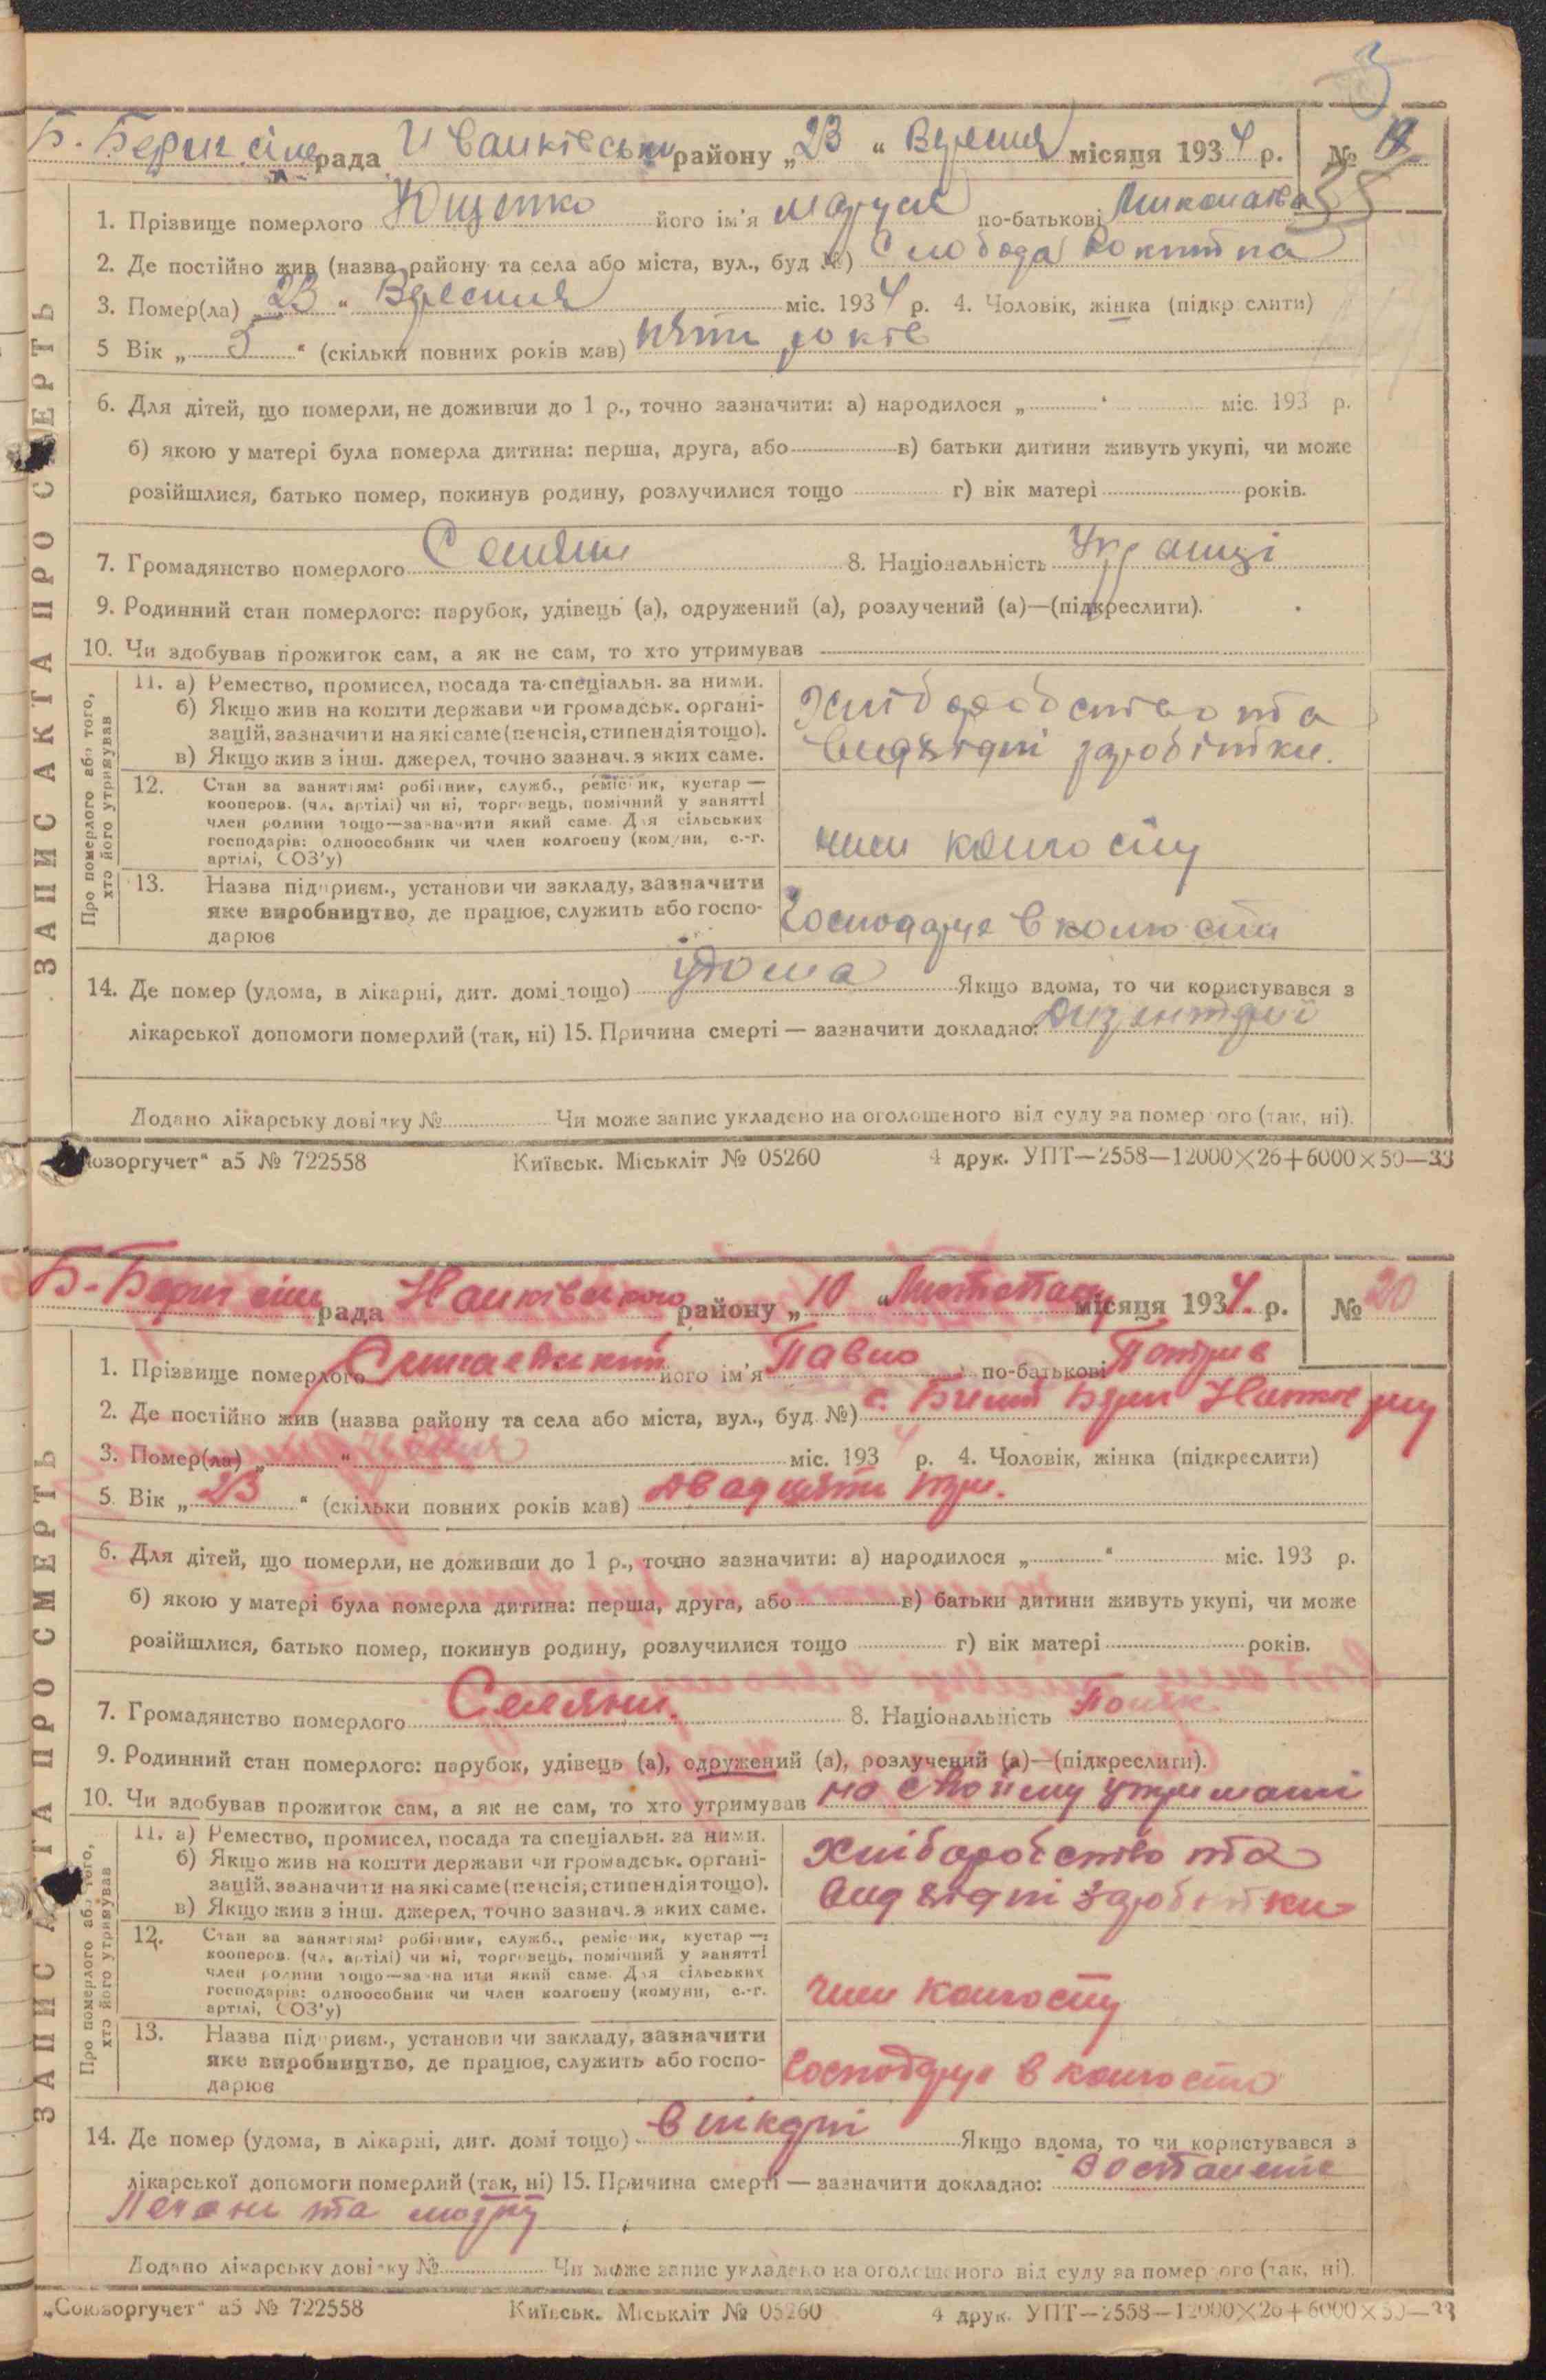 3
Б. Берш сільрада Иванківськ району „23“ Вересня місяця 1934 р. № 19
35
ЗАПИС АКТА ПРО СМЕРТЬ
1. Прізвище померлого Ющенко його ім'я Маруся по-батькові Миколаєва
2. Де постійно жив (назва району та села або міста, вул., буд №) Слобода Рокитна
3. Помер(ла) „23“ Вересня міс. 1934 р. 4. Чоловік, жінка (підкр слити)
5 Вік „5“ (скільки повних років мав) пять років
6. Для дітей, що померли, не доживши до 1 р., точно зазначити: а) народилося „ “ міс. 193 р.
б) якою у матері була померла дитина: перша, друга, або в) батьки дитини живуть укупі, чи може
розійшлися, батько помер, покинув родину, розлучилися тощо г) вік матері років.
7. Громадянство померлого Селяни 8. Національність Українці
9. Родинний стан померлого: парубок, удівець (а), одружений (а), розлучений (а)—(підкреслити).
10. Чи здобував прожиток сам, а як не сам, то хто утримував
Про померлого або того, хто його утримував
11. а) Ремество, промисел, посада та спеціальн. за ними.
б) Якщо жив на кошти держави чи громадськ. органі-
зацій, зазначити на які саме (пенсія, стипендія тощо).
в) Якщо жив з інш. джерел, точно зазнач. з яких саме.
Хліборобство та
видхідні заробітки.
12. Стан за заняттям: робітник, служб., реміс ик, кустар —
кооперов. (чл. артілі) чи ні, торговець, помічний у занятті
член родини тощо—зазначити який саме. Для сільських
господарів: одноособник чи член колгоспу (комуни, с.-г.
артілі, СОЗ'у)
член колгоспу
13. Назва підприєм., установи чи закладу, зазначити
яке виробництво, де працює, служить або госпо-
дарює
Господарує в колгоспи
14. Де помер (удома, в лікарні, дит. домі тощо) удома Якщо вдома, то чи користувався з
лікарської допомоги померлий (так, ні) 15. Причина смерті — зазначити докладно: Дизентерії
Додано лікарську довідку № Чи може запис укладено на оголошеного від суду за помер ого (так, ні).
„Союзоргучет“ а5 № 722558 Київськ. Міськліт № 05260 4 друк. УПТ—2558—12000×26+6000×50—33
Б-Берш сіль рада Иванківського району „10“ Листопаду місяця 1934. р. № 20
ЗАПИС АКТА ПРО СМЕРТЬ
1. Прізвище померлого його ім'я Павло по-батькові Петрів
2. Де постійно жив (назва району та села або міста, вул., буд. №) с. Білий Берег
3. Помер(ла) „ “ міс. 1934 р. 4. Чоловік, жінка (підкреслити)
5. Вік „23“ (скільки повних років мав) двадцять три.
6. Для дітей, що померли, не доживши до 1 р., точно зазначити: а) народилося „ “ міс. 193 р.
б) якою у матері була померла дитина: перша, друга, або в) батьки дитини живуть укупі, чи може
розійшлися, батько помер, покинув родину, розлучилися тощо г) вік матері років.
7. Громадянство померлого Селяни. 8. Національність Поляк
9. Родинний стан померлого: парубок, удівець (а), одружений (а), розлучений (а)—(підкреслити).
10. Чи здобував прожиток сам, а як не сам, то хто утримував на своїому утриманні
Про померлого або того, хто його утримував
11. а) Ремество, промисел, посада та спеціальн. за ними.
б) Якщо жив на кошти держави чи громадськ. органі-
зацій, зазначити на які саме (пенсія, стипендія тощо).
в) Якщо жив з інш. джерел, точно зазнач. з яких саме.
Хліборобство та
видхідні заробітки
12. Стан за заняттям: робітник, служб., реміс ик, кустар —
кооперов. (чл. артілі) чи ні, торговець, помічний у занятті
член родини тощо—зазна ити який саме. Для сільських
господарів: одноособник чи член колгоспу (комуни, с.-г.
артілі, СОЗ'у)
член колгоспу
13. Назва підприєм., установи чи закладу, зазначити
яке виробництво, де працює, служить або госпо-
дарює
Господарує в колгоспо
14. Де помер (удома, в лікарні, дит. домі тощо) в лікарні Якщо вдома, то чи користувався з
лікарської допомоги померлий (так, ні) 15. Причина смерті — зазначити докладно: Зосталення
Печени та мозгу
Додано лікарську довідку № Чи може запис укладено на оголошеного від суду за помер ого (так, ні).
„Союзоргучет“ а5 № 722558 Київськ. Міськліт № 05260 4 друк. УПТ—2558—12000×26+6000×50—33